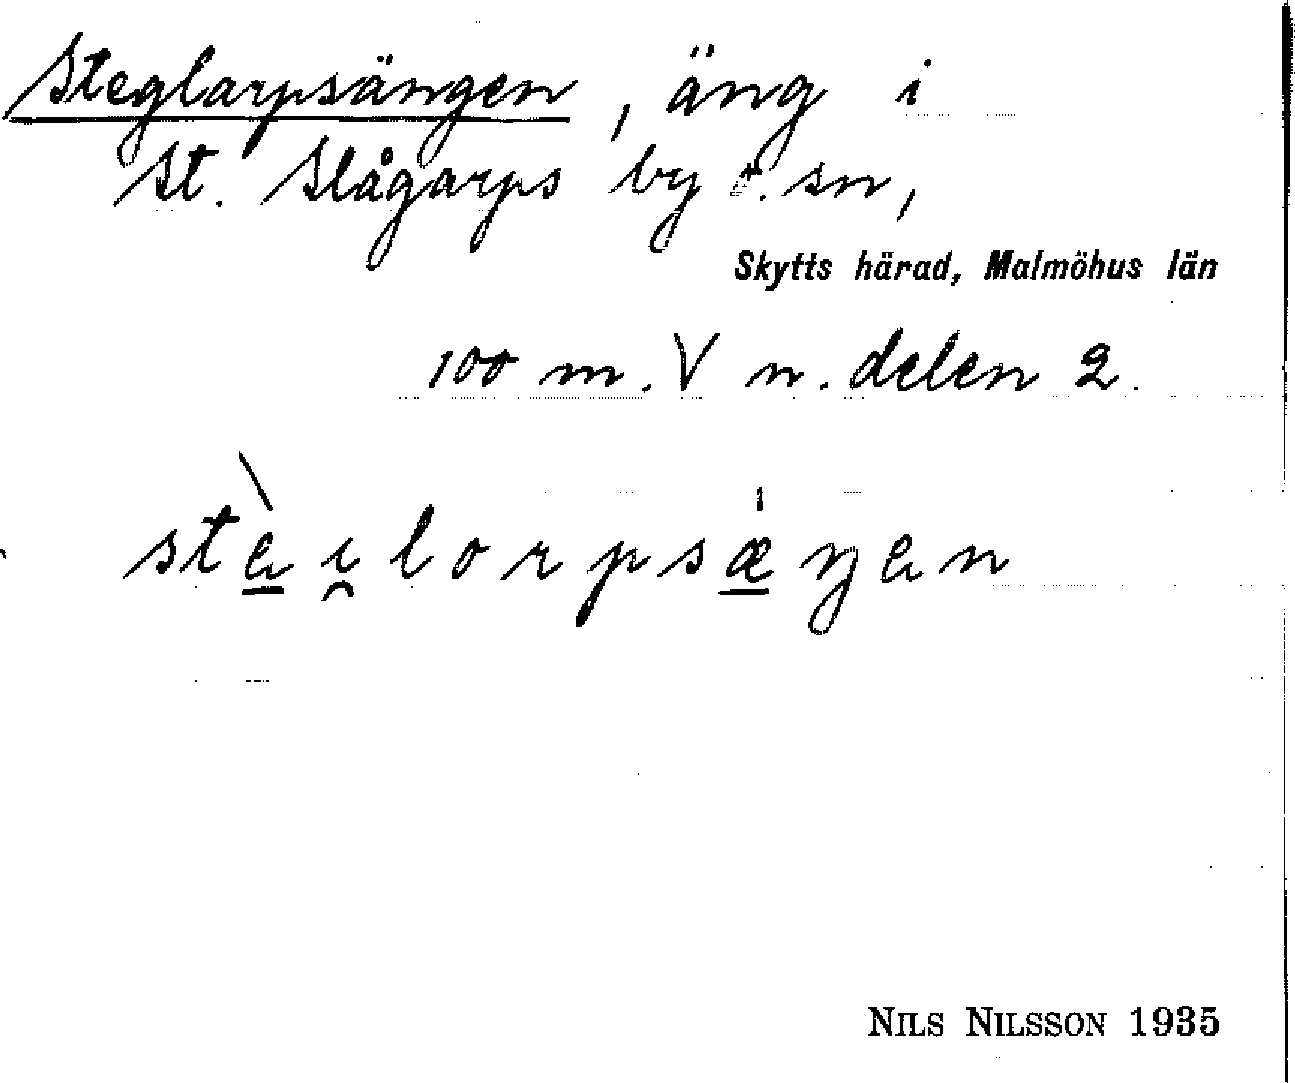 Steglarpsängen, äng i
St. Slågarps by o. sn,
Skytts härad, Malmöhus län
100 m. V n. delen 2.
stèi̯lorpsæ̍ŋen
NILS NILSSON 1935